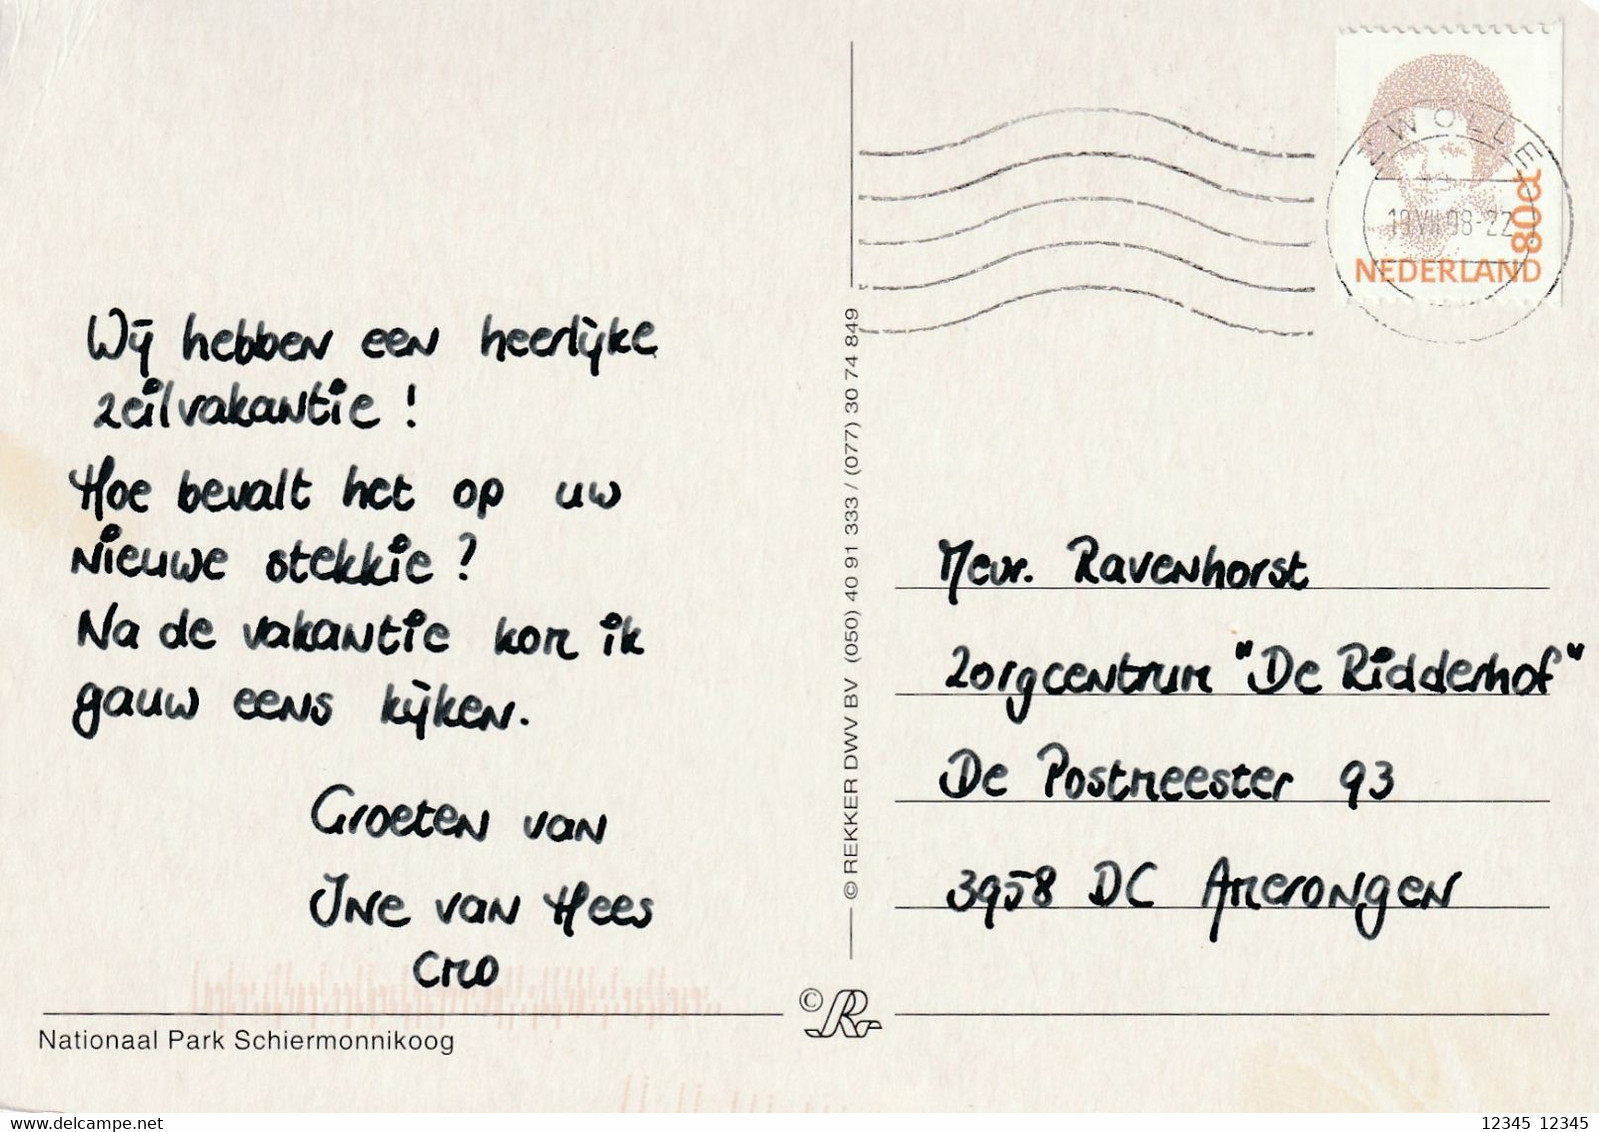 Wij hebben een heerlijke
zeilvakantie !
Hoe bevalt het op uw
nieuwe stekkie ?
Na de vakantie kom ik
gauw eens kijken.
Groeten van
Ine van Hees
CMO
Nationaal Park Schiermonnikoog
© REKKER DWV BV (050) 40 91 333 / (077) 30 74 849
© R
ZWOLLE
19.VII.98-22
80ct
NEDERLAND
Mevr. Ravenhorst
Zorgcentrum "De Ridderhof"
De Postmeester 93
3958 DC Amerongen
delcampe.net
tomsin
12345 12345